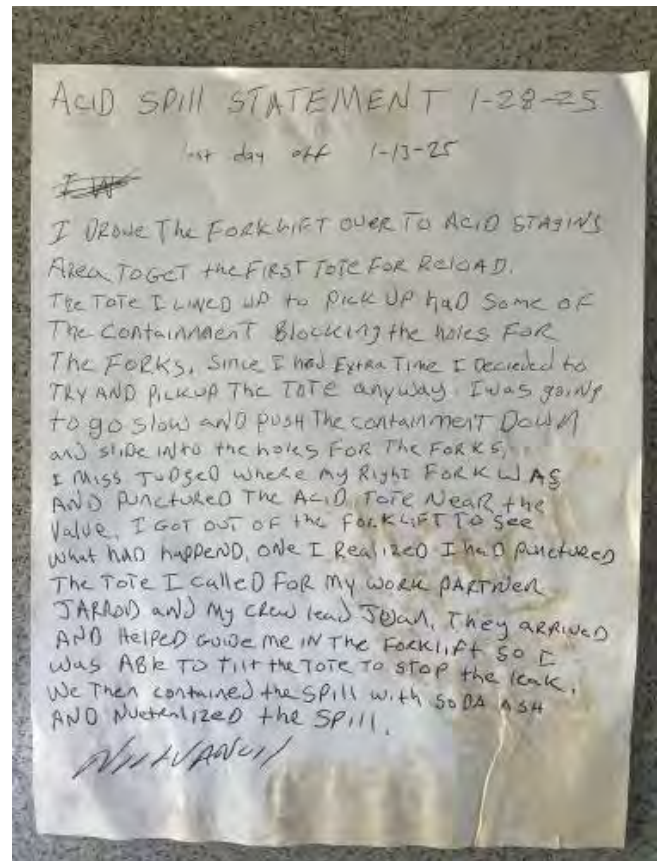 ACID SPIll STATEMENT 1-28-25
last day off 1-13-25
I DROVE The FORKLIFT OVER TO ACID STAGING
Area TO GET the FIRST TOTE FOR RELOAD.
The TOTE I LINED UP to PICK UP had Some OF
The CONTAINMENT Blocking the holes FOR
The FORKS, Since I had Extra Time I Decieded to
TRY AND PICKUP The TOTE anyway. I was going
to go slow and PUSH The containment DOWN
and slide into the holes FOR The FORKS,
I MISS JUDGED where my Right FORK WAS
AND PUNCTURED The ACID TOTE Near the
Valve. I GOT OUT OF the FORKLIFT TO See
what had happend, ONE I Realized I had punctured
The TOTE I called FOR my WORK PARTNER
JARROD and my crew lead JUAN. They ARRIVED
AND HELPED GUIDE ME IN The Forklift SO I
was Able TO tilt the TOTE TO STOP the leak.
We Then contained the SPill with SODA ASH
AND Nuetralized the SPill.